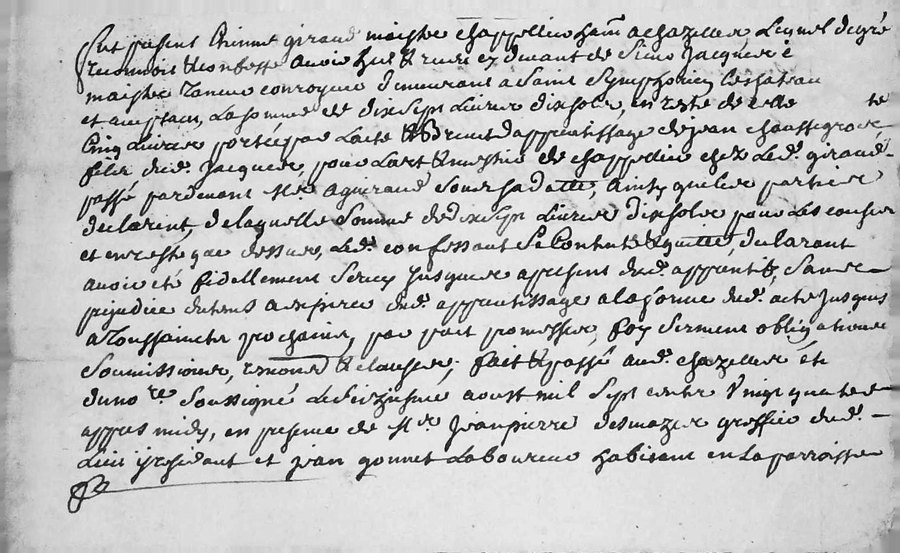 fut present Etienne giraud maistre chappellier ham a chazelles Lequel de gré
reconnois & confesse avoir heu & receu cy devant de Sieur Jacquier
maistre Taneur couroyeur demeurant a Saint Symphorien Lechateau
et acceptant, La somme de dix sept Livres dix sols, en reste de celle
Cinq Livres portée par Lacte & Brevet dapprentissage de jean chaussegros te
fils dud. Jacquier, pour Lart & mestier de chappellier chez Led. giraud
passé pardevant Me aguiraud Sous Sa datte, Ainsy que les parties
declarent, de laquelle Somme de dix sept Livres dix sols pour Les causes
et en reste que dessus, Led. confessant Se Contente & quitte declarant
avoir eté fidellement Servy Jusques apresent dud. apprentif, Sans
prejudice du tems a expirer dud. apprentissage a la forme dud. acte Jusques
a Toussaints prochains, par fait promesses, foy Serment obligations
Soumissions, renons & clauses; fait & passé aud. chazelles été
du no re Soussigné Le Seizieme aoust mil Sept cents Vingt quatre
appres midy, en presence de Me Jean pierre desmazes greffier dud.
Lieu y residant et jean gonnet Laboureur habitant en La parroisse